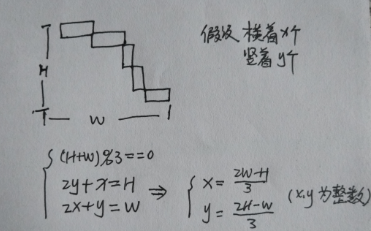 假设 横着x个
竖着y个
H
W
(H+W)%3==0
2y+x=H
2x+y=W
⇒
x=\frac{2W-H}{3}
y=\frac{2H-W}{3}
(x,y为整数)